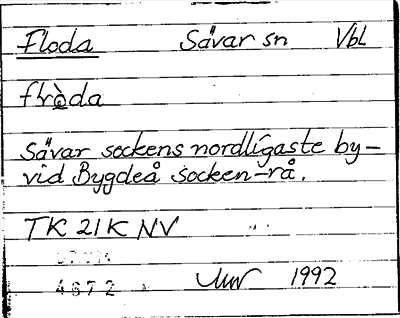 Floda Sävar sn Vbl
flròda
Sävar sockens nordligaste by-
vid Bygdeå socken-rå.
TK 21K NV
4672
1992